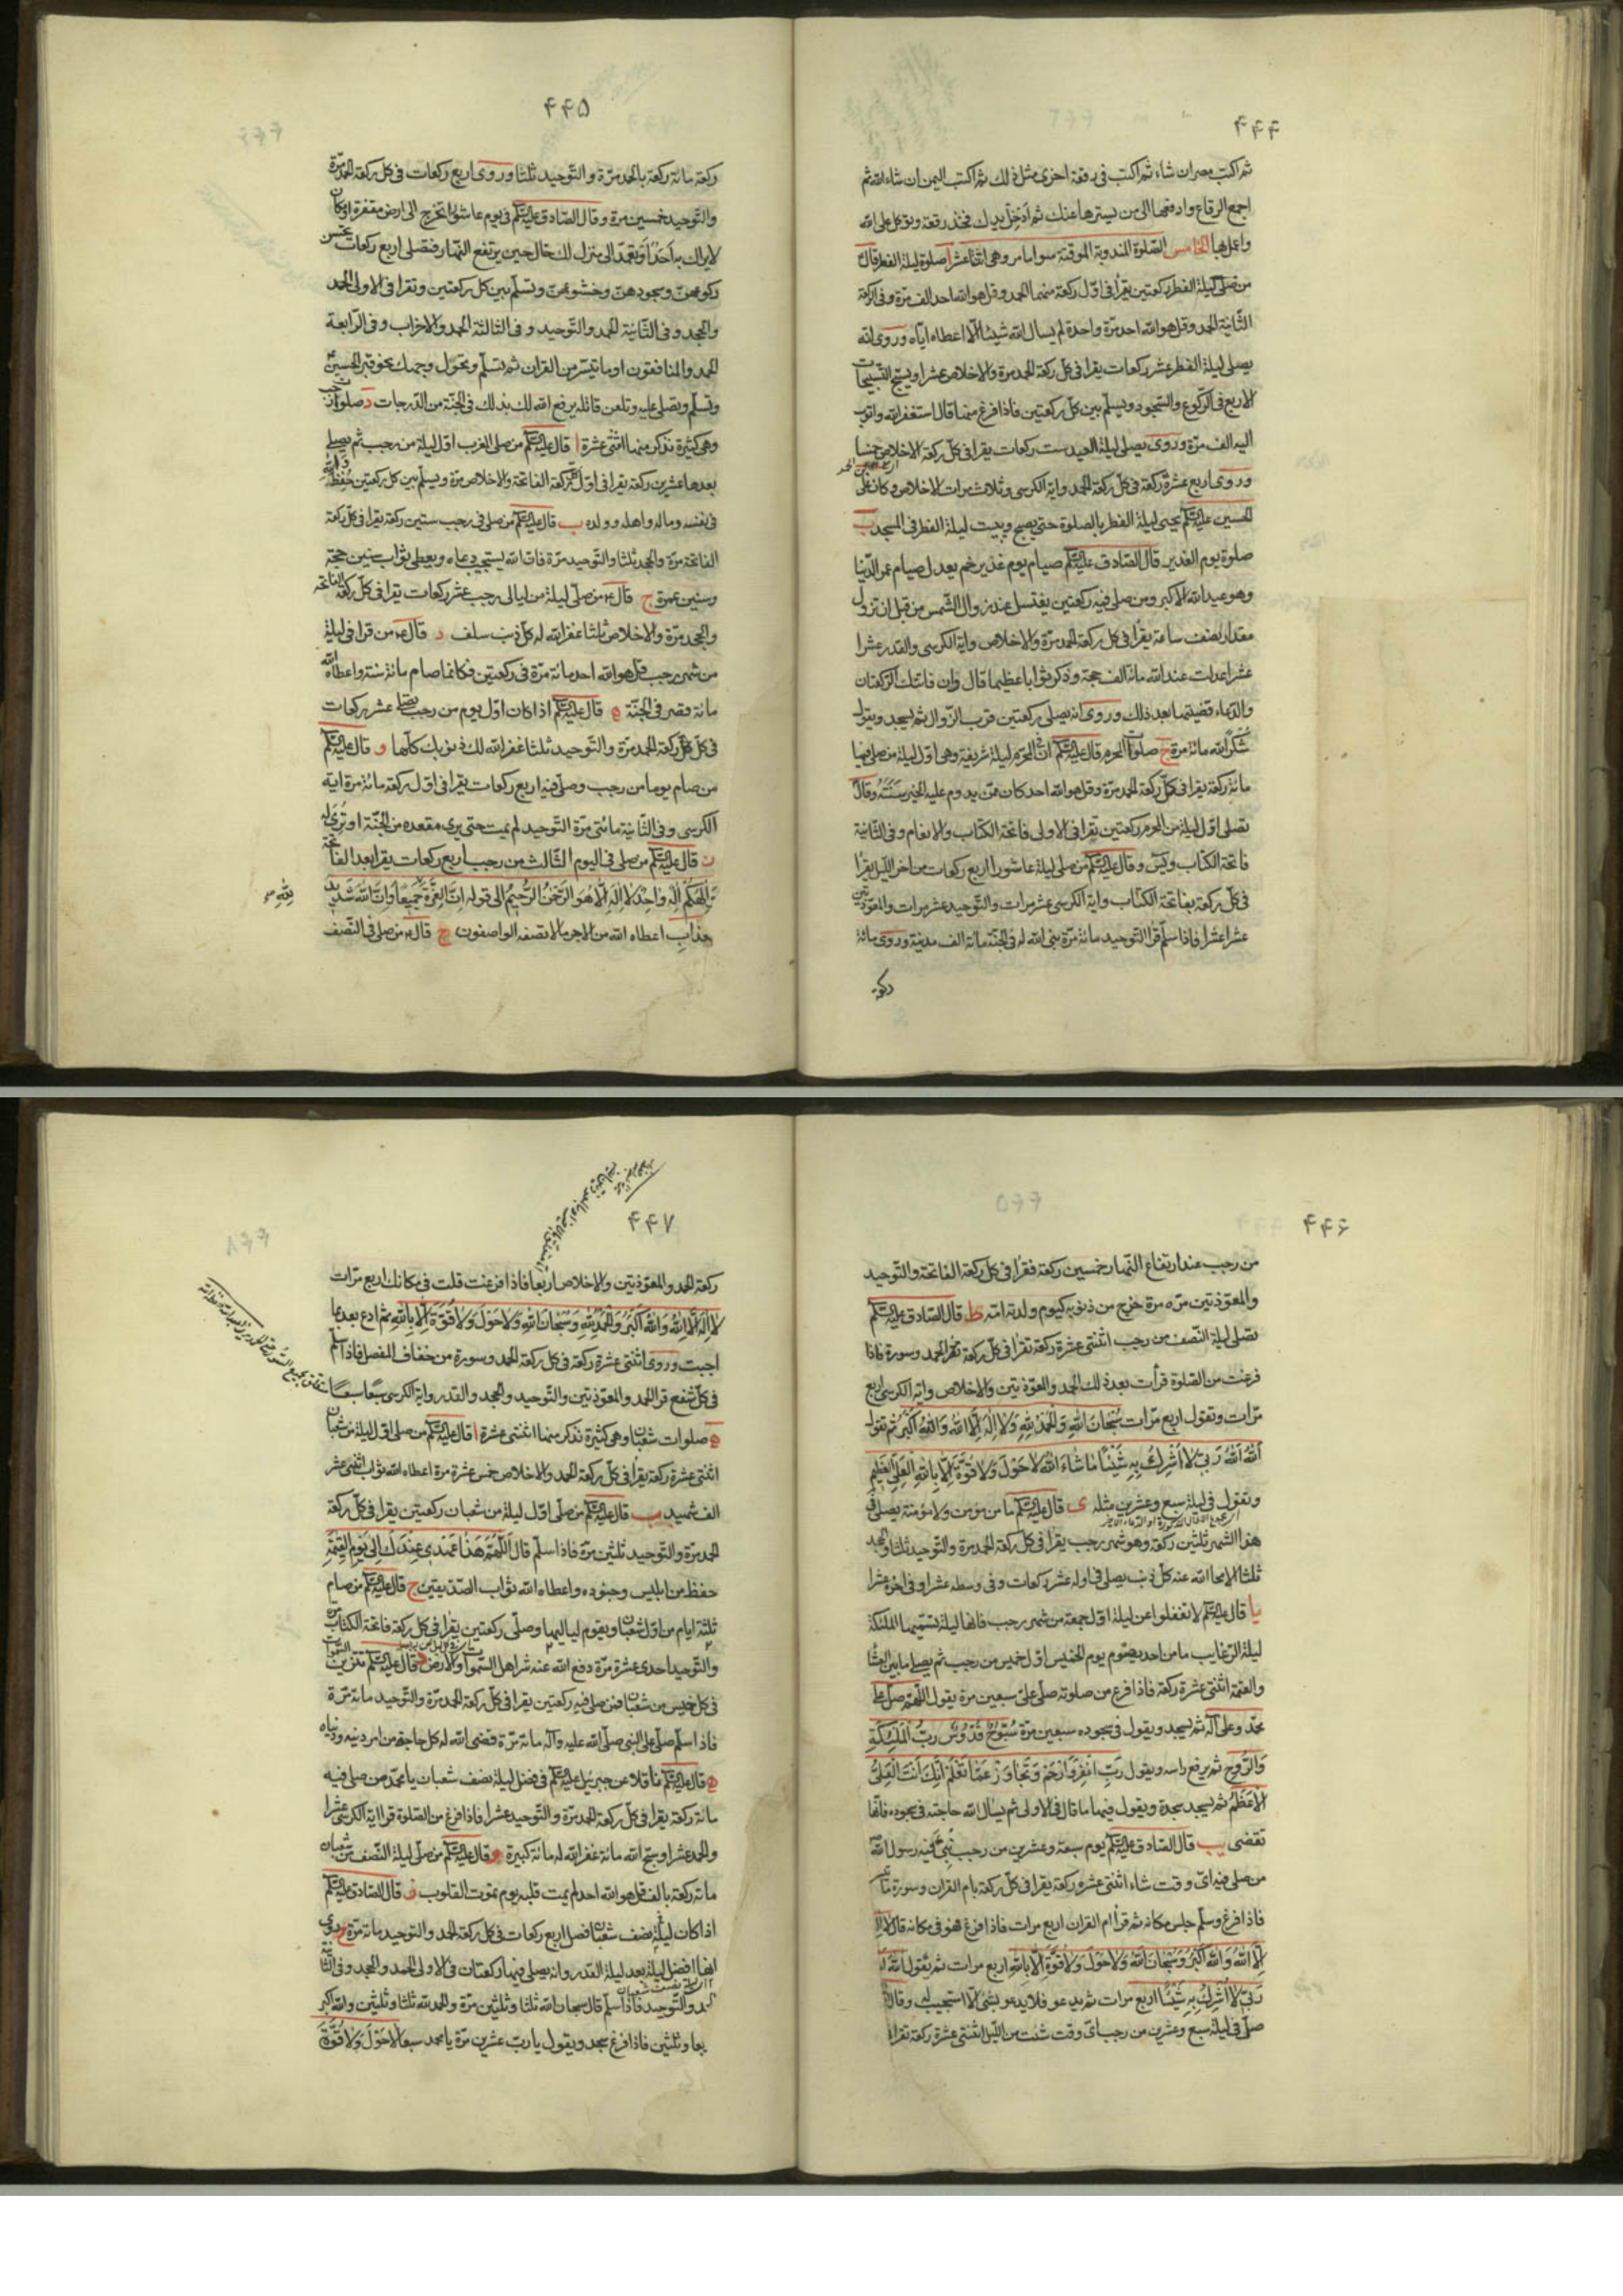 ۴۴۴
ثم اكتب مصر ان شاء ثم اكتب فى رقعة اخرى مثل ذلك ثم اكتب اليمن ان شاء الله ثم
اجمع الرقاع وادفعها الى من يسترها عنك ثم ادخل يدك فخذ رقعة وتوكل على الله
واعمل بها الخامس الصلوة المندوبة الموقتة سوا ما مر وهى اثنتا عشر ا صلوة ليلة الفطر قال
من صلى ليلة الفطر ركعتين يقرأ فى اول ركعة منهما الحمد وقل هو الله احد الف مرة وفى الركعة
الثانية الحمد وقل هو الله احد مرة واحدة لم يسال الله شيئا الا اعطاه اياه وروى انه
يصلى ليلة الفطر عشر ركعات يقرا فى كل ركعة الحمد مرة والاخلاص عشرا ويسبح التسبيحات
الاربع فى الركوع والسجود ويسلم بين كل ركعتين فاذا فرغ منها قال استغفر الله واتوب
اليه الف مرة وروى يصلى ليلة العيد ست ركعات يقرا فى كل ركعة الاخلاص خمسا
وروى اربع عشرة ركعة فى كل ركعة الحمد واية الكرسى وثلاث مرات الاخلاص وكان على
الحسين عليه السلم يحيى ليلة الفطر بالصلوة حتى يصبح ويبيت ليلة الفطر فى المسجد ب
صلوة يوم الغدير قال الصادق عليه السلم صيام يوم غدير خم يعدل صيام عمر الدنيا
وهو عيد الله الاكبر ومن صلى فيه ركعتين يغتسل عند زوال الشمس من قبل ان تزول
مقدار نصف ساعة يقرأ فى كل ركعة الحمد مرة والاخلاص واية الكرسى والقدر عشرا
عشرا عدلت عند الله مائة الف حجة وذكر ثوابا عظيما قال وان فاتتك الركعتان
والدعاء قضيتهما بعد ذلك وروى انه يصلى ركعتين قرب الزوال ثم يسجد ويقول
شكرا لله مائة مرة ج صلوات المحرم قال عليه السلم ان فى المحرم ليلة شريفة وهى اول ليلة من صلى فيها
مائة ركعة يقرا فى كل ركعة الحمد مرة وقل هو الله احد كان ممن يدوم عليه الخير سنته وقال
تصلى اول ليلة من المحرم ركعتين تقرا فى الاولى فاتحة الكتاب والانعام وفى الثانية
فاتحة الكتاب ويس وقال عليه السلم من صلى ليلة عاشورا اربع ركعات من اخر الليل يقرأ
فى كل ركعة بفاتحة الكتاب واية الكرسى عشر مرات والتوحيد عشر مرات والمعوذتين
عشرا عشرا فاذا سلم قرأ التوحيد مائة مرة بنى الله له فى الجنة مائة الف مدينة وروى مائة
ركعة
۴۴۵
ركعة مائة ركعة بالحمد مرة والتوحيد ثلثا وروى اربع ركعات فى كل ركعة الحمد مرة
والتوحيد خمسين مرة وقال الصادق عليه السلم فى يوم عاشورا تخرج الى ارض مقفرة او مكان
لا يراك به احد او تعمد الى منزل لك خال حين يرتفع النهار فتصلى اربع ركعات تحسن
ركوعهن وسجودهن وخشوعهن وتسلم بين كل ركعتين وتقرا فى الاولى الحمد
والجحد وفى الثانية الحمد والتوحيد وفى الثالثة الحمد والاحزاب وفى الرابعة
الحمد والمنافقون او ما تيسر من القران ثم تسلم وتحول وجهك نحو قبر الحسين
وتسلم وتصلى عليه وتلعن قاتله يرفع الله لك بذلك فى الجنة من الدرجات د صلوات رجب
وهى كثيرة نذكر منها اثنتى عشرة ا قال عليه السلم من صلى المغرب اول ليلة من رجب ثم يصلى
بعدها عشرين ركعة يقرا فى اول كل ركعة الفاتحة والاخلاص مرة ويسلم بين كل ركعتين حفظه والله
فى نفسه وماله واهله وولده ب قال عليه السلم من صلى فى رجب ستين ركعة يقرا فى كل ركعة
الفاتحة مرة والجحد ثلثا والتوحيد مرة فان الله يستجيب دعاه ويعطى ثواب ستين حجة
وستين عمرة ج قال ع من صلى ليلة من ليالى رجب عشر ركعات يقرا فى كل ركعة الفاتحة
والجحد مرة والاخلاص ثلثا غفر الله له كل ذنب سلف د قال ع من قرا فى ليلة
من شهر رجب قل هو الله احد مائة مرة فى ركعتين فكانما صام مائة سنة واعطاه الله
مائة قصر فى الجنة ه قال عليه السلم اذا كان اول يوم من رجب تصلى عشر ركعات
فى كل ركعة الحمد مرة والتوحيد ثلثا غفر الله لك ذنوبك كلها و قال عليه السلم
من صام يوما من رجب وصلى فيه اربع ركعات يقرا فى اول ركعة مائة مرة اية
الكرسى وفى الثانية مائتى مرة التوحيد لم يمت حتى يرى مقعده من الجنة او ترى له
ز قال عليه السلم من صلى فى اليوم الثالث من رجب اربع ركعات يقرا بعد الفاتحة
والهكم اله واحد لا اله الا هو الرحمن الرحيم الى قوله ان القوة جميعا وان الله شديد
لله
عذاب اعطاه الله من الاجر ما لا تصفه الواصفون ح قال ع من صلى فى النصف
۴۴۶
من رجب عند ارتفاع النهار خمسين ركعة فقرا فى كل ركعة الفاتحة والتوحيد
والمعوذتين مره مرة خرج من ذنوبه كيوم ولدته امه ط قال الصادق عليه السلم
تصلى ليلة النصف من رجب اثنتى عشرة ركعة تقرا فى كل ركعة تقرا الحمد وسورة فاذا
فرغت من الصلوة قرأت بعد ذلك الحمد والمعوذتين والاخلاص واية الكرسى اربع
مرات وتقول اربع مرات سبحان الله والحمد لله ولا اله الا الله والله اكبر ثم تقول
الله الله ربى لا اشرك به شيئا ما شاء الله لا حول ولا قوة الا بالله العلى العظيم
وتقول فى ليلة سبع وعشرين مثله ى قال عليه السلم ما من مؤمن ولا مؤمنة يصلى فى
هذا الشهر ثلثين ركعة وهو شهر رجب يقرا فى كل ركعة الحمد مرة والتوحيد ثلثا والجحد
ثلثا الا محا الله عنه كل ذنب يصلى فى اوله عشر ركعات وفى وسطه عشرا وفى اخره عشرا
يا قال عليه السلم لا تغفلوا عن ليلة اول جمعة من شهر رجب فانها ليلة تسميها الملئكة
ليلة الرغايب ما من احد يصوم يوم الخميس اول خميس من رجب ثم يصلى ما بين العشا
والعتمة اثنتى عشرة ركعة فاذا فرغ من صلوته صلى على سبعين مرة يقول اللهم صل على
محمد وعلى آله ثم يسجد ويقول فى سجوده سبعين مرة سبوح قدوس رب الملئكة
والروح ثم يرفع راسه ويقول رب اغفر وارحم وتجاوز عما تعلم انك انت العلى
الاعظم ثم يسجد سجدة ويقول فيها ما قال فى الاولى ثم يسال الله حاجته فى سجوده فانها
تقضى يب قال الصادق عليه السلم يوم سبعة وعشرين من رجب نبئ فيه رسول الله
من صلى فيه اى وقت شاء اثنتى عشره ركعة يقرا فى كل ركعة بام القران وسورة ما تيسر
فاذا فرغ وسلم جلس مكانه ثم قرأ ام القران اربع مرات فاذا فرغ فهو فى مكانه قال لا اله
الا الله والله اكبر وسبحان الله ولا حول ولا قوة الا بالله اربع مرات ثم يقول الله الله
ربى لا اشرك به شيئا اربع مرات ثم يدعو فلا يدعو بشئ الا استجيب له وقال
صل فى ليلة سبع وعشرين من رجب اى وقت شئت من الليل اثنتى عشرة ركعة تقرا
۴۴۷
ركعة الحمد والمعوذتين والاخلاص اربعا فاذا فرغت قلت فى مكانك اربع مرات
لا اله الا الله والله اكبر والحمد لله وسبحان الله ولا حول ولا قوة الا بالله ثم ادع بعد بما
احببت وروى اثنتى عشرة ركعة فى كل ركعة الحمد وسورة من خفاف المفصل فاذا سلم
فى كل شفع قرا الحمد والمعوذتين والتوحيد والجحد والقدر واية الكرسى سبعا سبعا
ه صلوات شعبان وهى كثيرة نذكر منها اثنتى عشرة ا قال عليه السلم من صلى اول ليلة من شعبان
اثنتى عشرة ركعة يقرا فى كل ركعة الحمد والاخلاص خمس عشرة مرة اعطاه الله ثواب اثنى عشر
الف شهيد ب قال عليه السلم من صلى اول ليلة من شعبان ركعتين يقرا فى كل ركعة
الحمد مرة والتوحيد ثلثين مرة فاذا سلم قال اللهم هذا عهدى عندك الى يوم القيمة
حفظ من ابليس وجنوده واعطاه الله ثواب الصديقين ج قال عليه السلم من صام
ثلثة ايام من اول شعبان ويقوم لياليها وصلى ركعتين يقرا فى كل ركعة فاتحة الكتاب مرة
والتوحيد احدى عشرة مرة دفع الله عنه شر اهل السموات والارض د قال عليه السلم تتزين السموات
فى كل خميس من شعبان فمن صلى فيه ركعتين يقرا فى كل ركعة الحمد مرة والتوحيد مائة مرة
فاذا سلم صلى على النبى صلى الله عليه وآله مائة مرة قضى الله له كل حاجة من امر دينه ودنياه
ه قال عليه السلم ناقلا عن جبرئيل عليه السلم فى فضل ليلة نصف شعبان يا محمد من صلى فيه
مائة ركعة يقرا فى كل ركعة الحمد مرة والتوحيد عشرا فاذا فرغ من الصلوة قرا اية الكرسى عشرا
والحمد عشرا وسبح الله مائة غفر الله له مائة كبيرة و قال عليه السلم من صلى ليلة النصف من شعبان
مائة ركعة بالف قل هو الله احد لم يمت قلبه يوم تموت القلوب ز قال الصادق عليه السلم
اذا كان ليلة نصف شعبان فصل اربع ركعات فى كل ركعة الحمد والتوحيد مائة مرة ح روى
انها افضل ليلة بعد ليلة القدر وانه يصلى فيها ركعتان فى الاولى الحمد والجحد وفى الثانية
الحمد والتوحيد فاذا سلم قال سبحان الله ثلثا وثلثين مرة والحمد لله ثلثا وثلثين والله اكبر
ربعا وثلثين فاذا فرغ سجد ويقول يا رب عشرين مرة يا محمد سبعا لا حول ولا قوة